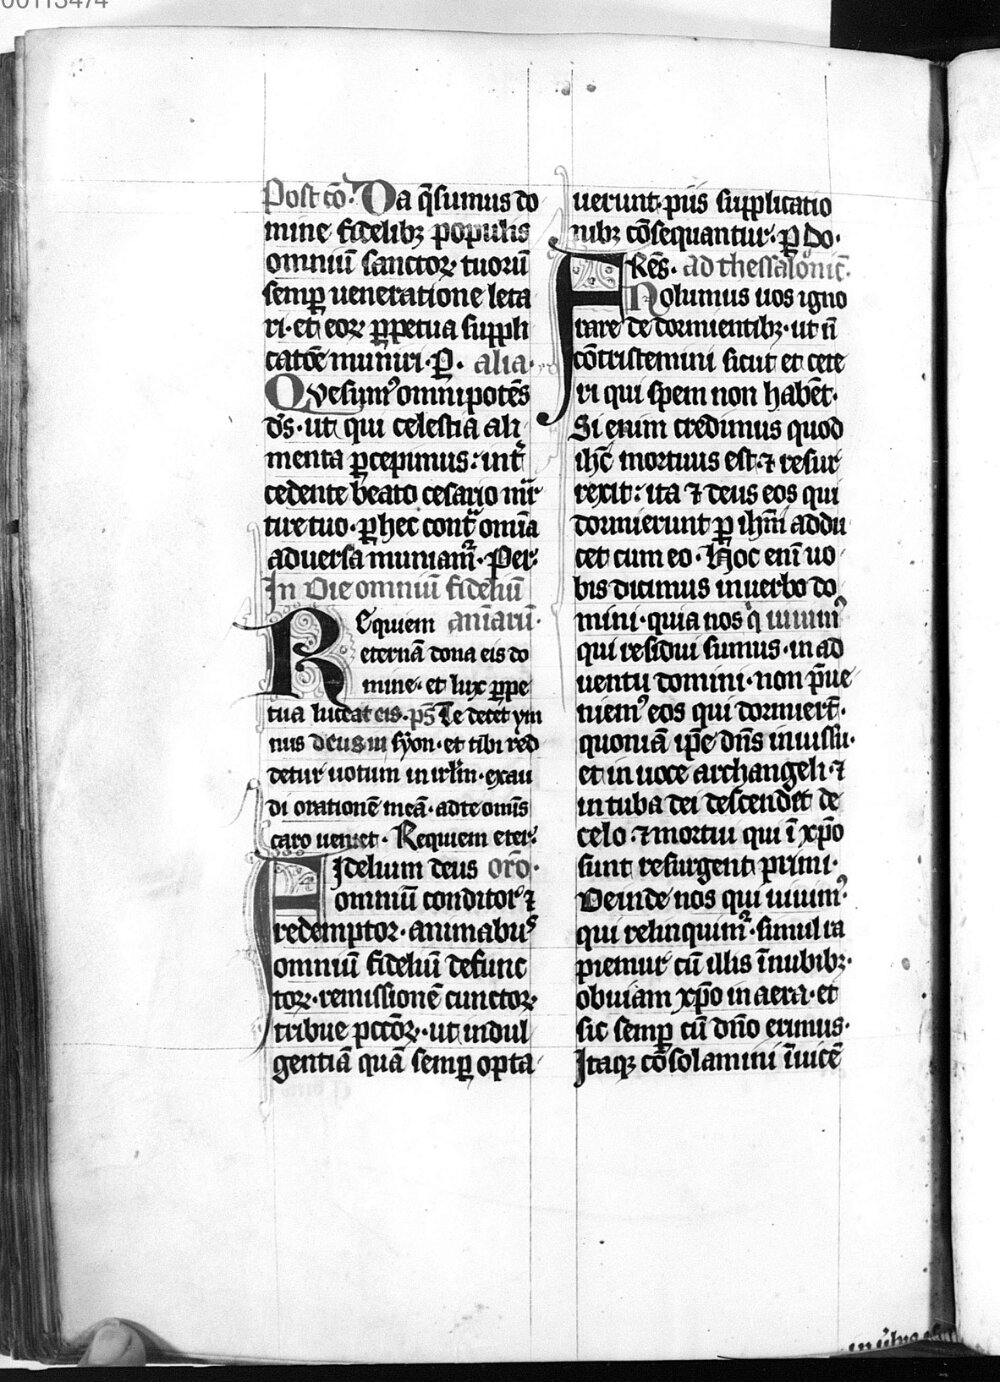 00113474
Post cō. Da q̄sumus do
mine fidelibꝫ populis
omniū sanctoꝝ tuorū
semꝑ ueneratione leta
ri· et eoꝝ ꝑpetua suppli
catōe muniri· P̱. alia·
Qvesum᷒ omnipotēs
ds̄· ut qui celestia ali
menta ꝑcepimus: int̄
cedente beato cesario mr̄
tire tuo· ꝑ hec cont̄ omīa
aduersa muniam̄· Per·
In Die omniū fideliū
Requiem aīarū·
eternā dona eis do
mine· et lux ꝑpe
tua luceat eis· ps̄ Te decet ym
nus deus in syon· et tibi red
detur uotum in irl̄m· exau
di orationē meā· ad te omīs
caro ueniet· Requiem eter·
Fidelium deus orō·
omniū conditor ⁊
redemptor· animabus
omniū fideliū defunc
toꝝ· remissionē cunctoꝝ
tribue pctōꝝ· ut indul
gentiā quā semꝑ opta
uerunt· piis supplicatio
nibꝫ cōsequantur· ꝑ do·
FRēs· ad thessalonic̄·
Nolumus uos igno
rare de dormientibꝫ· ut n̄
cōtristemini sicut et cete
ri qui spem non habēt·
Si enim credimus quod
ihc̄ mortuus est· ⁊ resur
rexit: ita ⁊ deus eos qui
dormierunt ꝑ ihm̄ addu
cet cum eo· Hoc enī uo
bis dicimus in uerbo do
mini· quia nos q̄ uiuim᷒
qui residui sumus· in ad
uentu domini· non p̄ue
niem᷒ eos qui dormiert̄·
quoniā ip̄e dn̄s in iussu·
et in uoce archangeli· ⁊
in tuba dei descendet de
celo· ⁊ mortui qui ī xp̄o
sunt resurgent primi·
Deinde nos qui uiuim᷒·
qui relinquim᷒· simul ra
piemur cū illis ī nubibꝫ·
obuiam xp̄o in aera· et
sic semꝑ cū dn̄o erimus·
Itaqꝫ cōsolamini īuicē